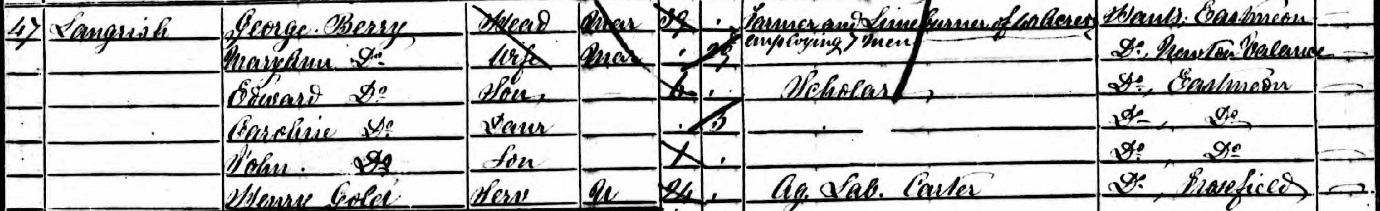 47 Langrish George Berry Head Mar 39 Farmer and Lime burner of acres Hants. Eastmeon
employing 7 men
Maryann Do Wife Mar Do, Newton Valance
Edward Do Son, 6 Scholar Do, Eastmeon
Caroline Do Daur 3 Do, Do
John. Do Son 1 Do, Do
Henry Gold Serv 24 Ag. Lab. Carter Do,